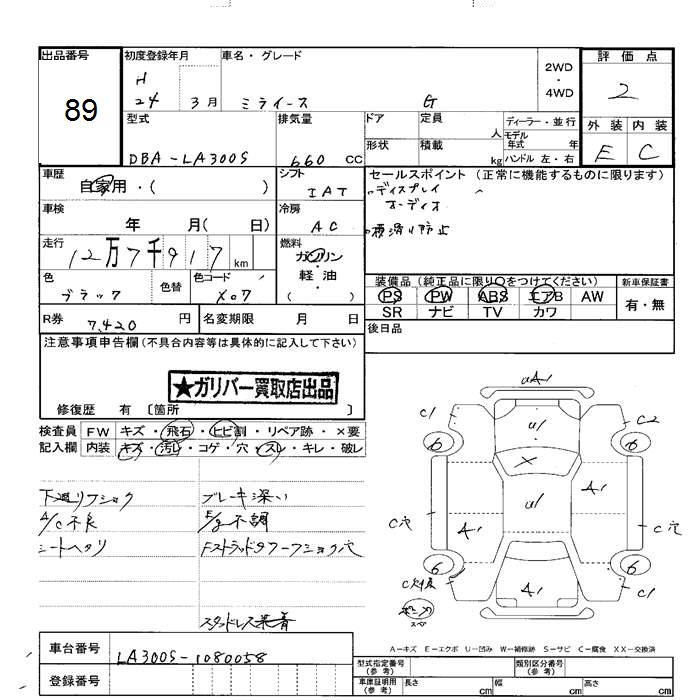 出品番号 89
初度登録年月 H 24 3月
車名・グレード ミライース G
2WD・4WD
評価点 2
外装 内装
E C
型式 DBA-LA300S
排気量 660 CC
ドア 定員 人
形状 積載 kg
ディーラー・並行
モデル年式 年
ハンドル 左・右
車歴 自家用・( )
シフト IAT
セールスポイント (正常に機能するものに限ります)
ディスプレイ
オーディオ
横滑り防止
車検 年 月( 日)
冷房 AC
走行 12万7千917km
燃料 ガソリン・軽油 ( )
色 ブラック 色替
色コード X07
装備品 (純正品に限り○をつけてください)
PS PW ABS エアB AW
SR ナビ TV カワ
新車保証書 有・無
R券 7,420 円
名変期限 月 日
後日品
注意事項申告欄(不具合内容等は具体的に記入して下さい)
★ガリバー買取店出品
修復歴 有 〔箇所 〕
検査員記入欄
FW キズ・飛石・ヒビ割・リペア跡・×要
内装 キズ・汚レ・コゲ・穴・スレ・キレ・破レ
下廻リフショク ブレーキ深い
A/C不良 E/g不調
シートヘタリ Fストラットタワーフショク穴
スタッドレス装着
uA1
C1 u1 C2
6 6
X
A1 u1 A1
C穴 C穴
6 6
A1 C1
A=キズ E=エクボ U=凹み W=補修跡 S=サビ C=腐食 XX=交換済
車台番号 LA300S-1080058
登録番号
型式指定番号(参考) 類別区分番号(参考)
車庫証明用(参考) 長さ cm 幅 cm 高さ cm